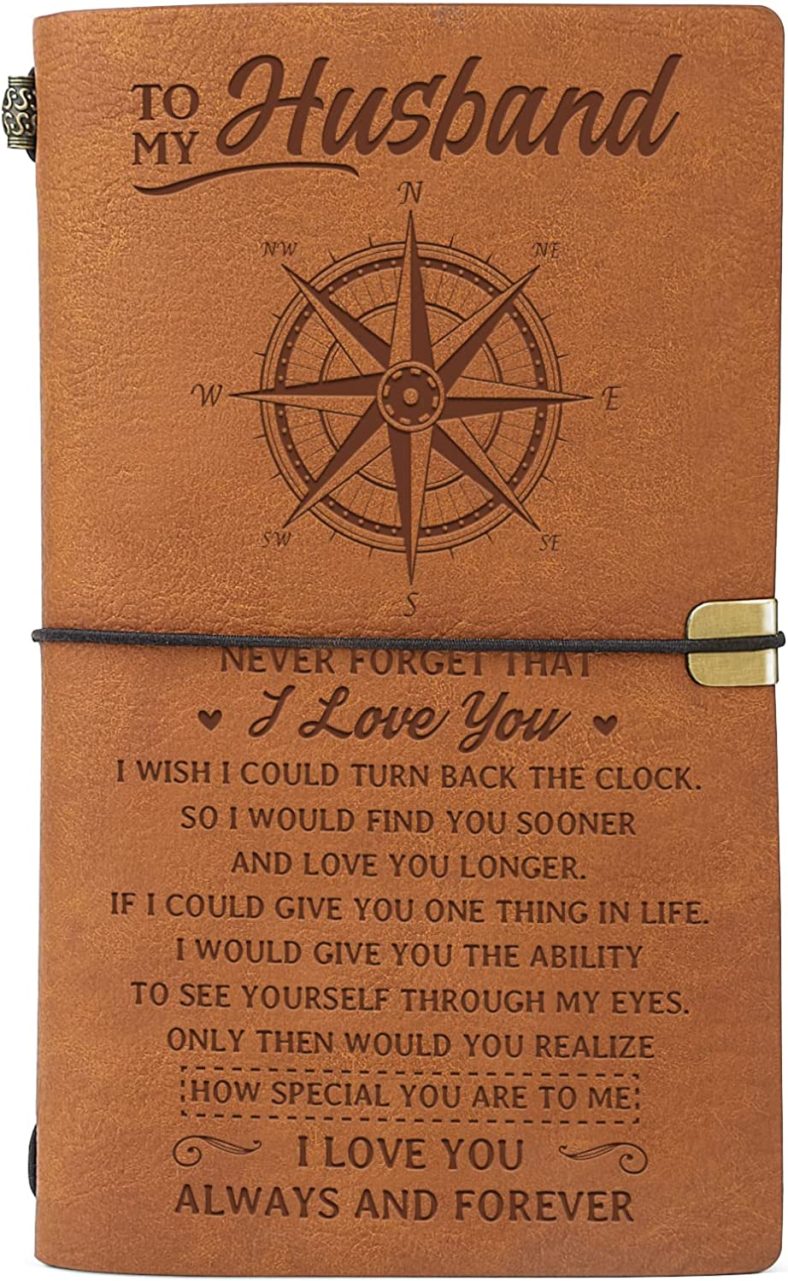 TO MY Husband
N
NW NE
W E
SW SE
S
NEVER FORGET THAT
I Love You
I WISH I COULD TURN BACK THE CLOCK.
SO I WOULD FIND YOU SOONER
AND LOVE YOU LONGER.
IF I COULD GIVE YOU ONE THING IN LIFE.
I WOULD GIVE YOU THE ABILITY
TO SEE YOURSELF THROUGH MY EYES.
ONLY THEN WOULD YOU REALIZE
HOW SPECIAL YOU ARE TO ME
I LOVE YOU
ALWAYS AND FOREVER